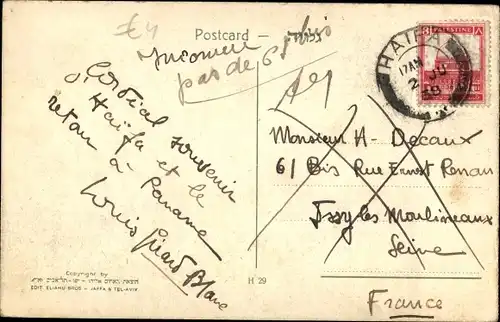 Postcard – גלויה
Inconnu
pas de 61 bis
Cordial souvenir
d'Haïfa et le
retour à Paname
Louis Girard Blanc
PALESTINE
HAIFA
17 AM
2 JU
39
Monsieur A- Decaux
61 Bis Rue Ernest Renan
Issy les Moulineaux
Seine
France
Copyright by
EDIT. ELIAHU BROS - JAFFA & TEL-AVIV
H 29